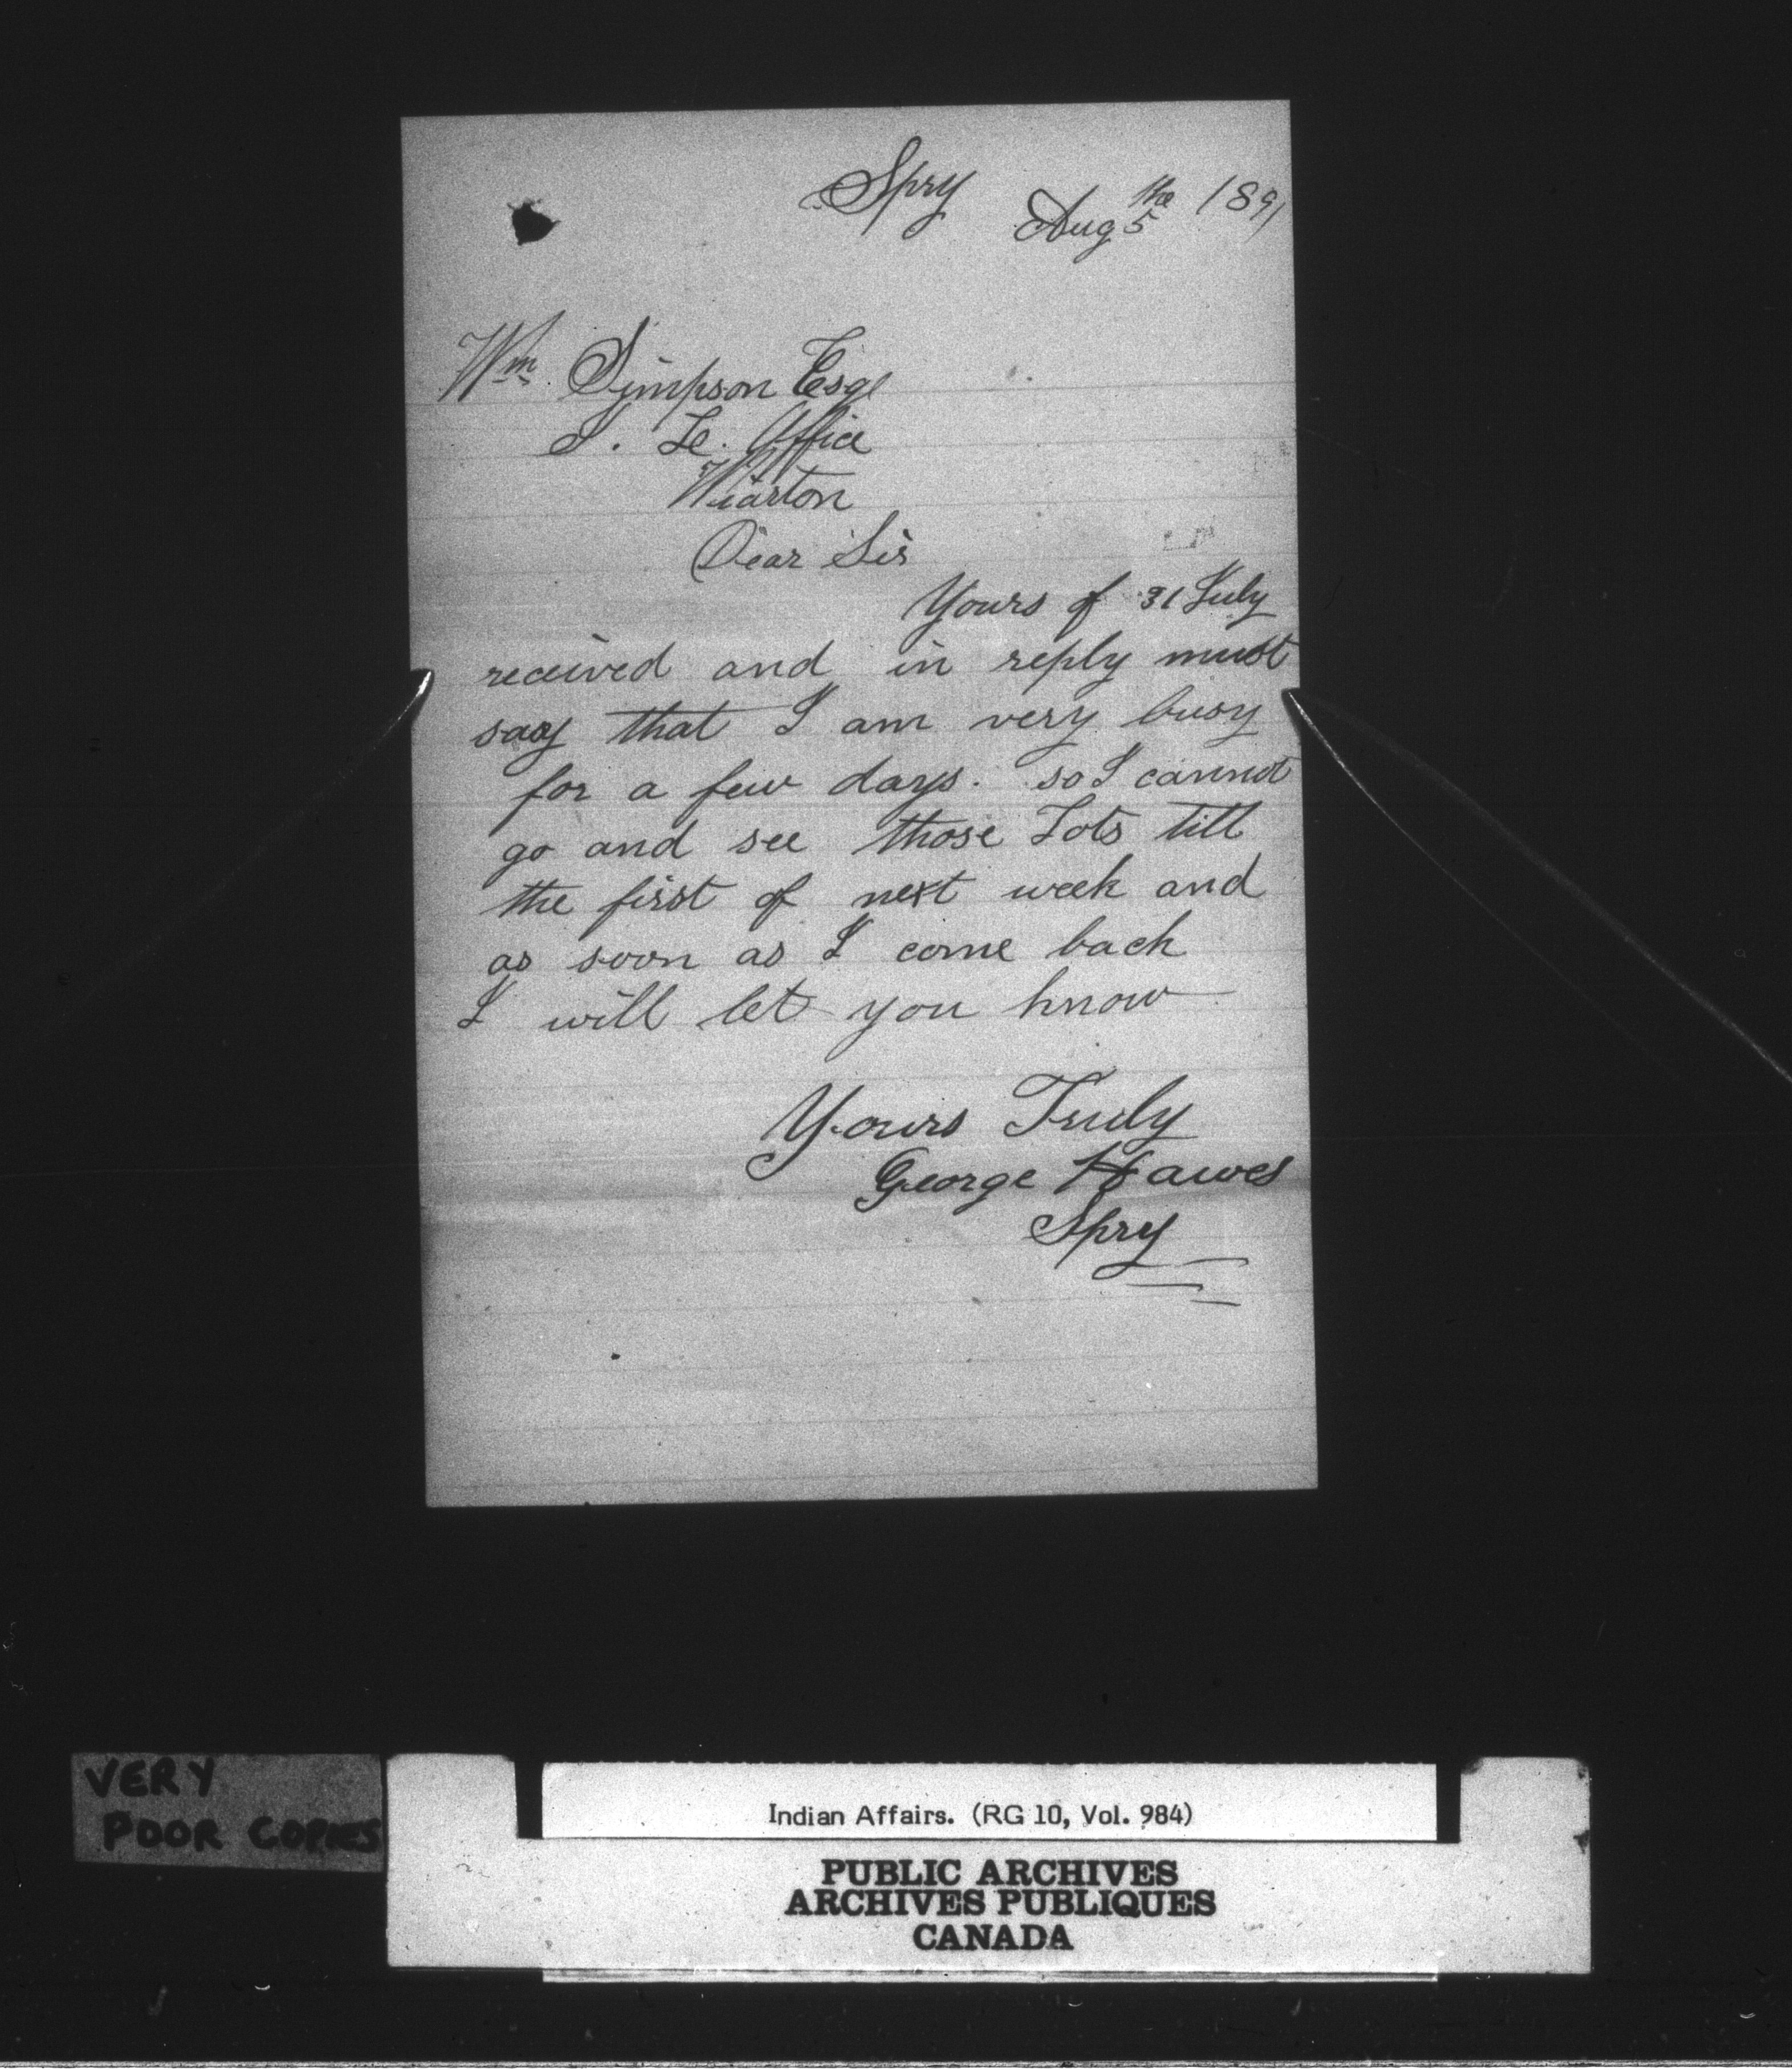 Spry Aug 5the 1891
Wm. Simpson Esqe
I. Le. Office
Wiarton
Dear Sir
Yours of 31 July
received and in reply must
say that I am very busy
for a few days. so I cannot
go and see those Lots till
the first of next week and
as soon as I come back
I will let you know
Yours Truly
George Hawes
Spry
VERY
POOR COPIES
Indian Affairs. (RG 10, Vol. 984)
PUBLIC ARCHIVES
ARCHIVES PUBLIQUES
CANADA